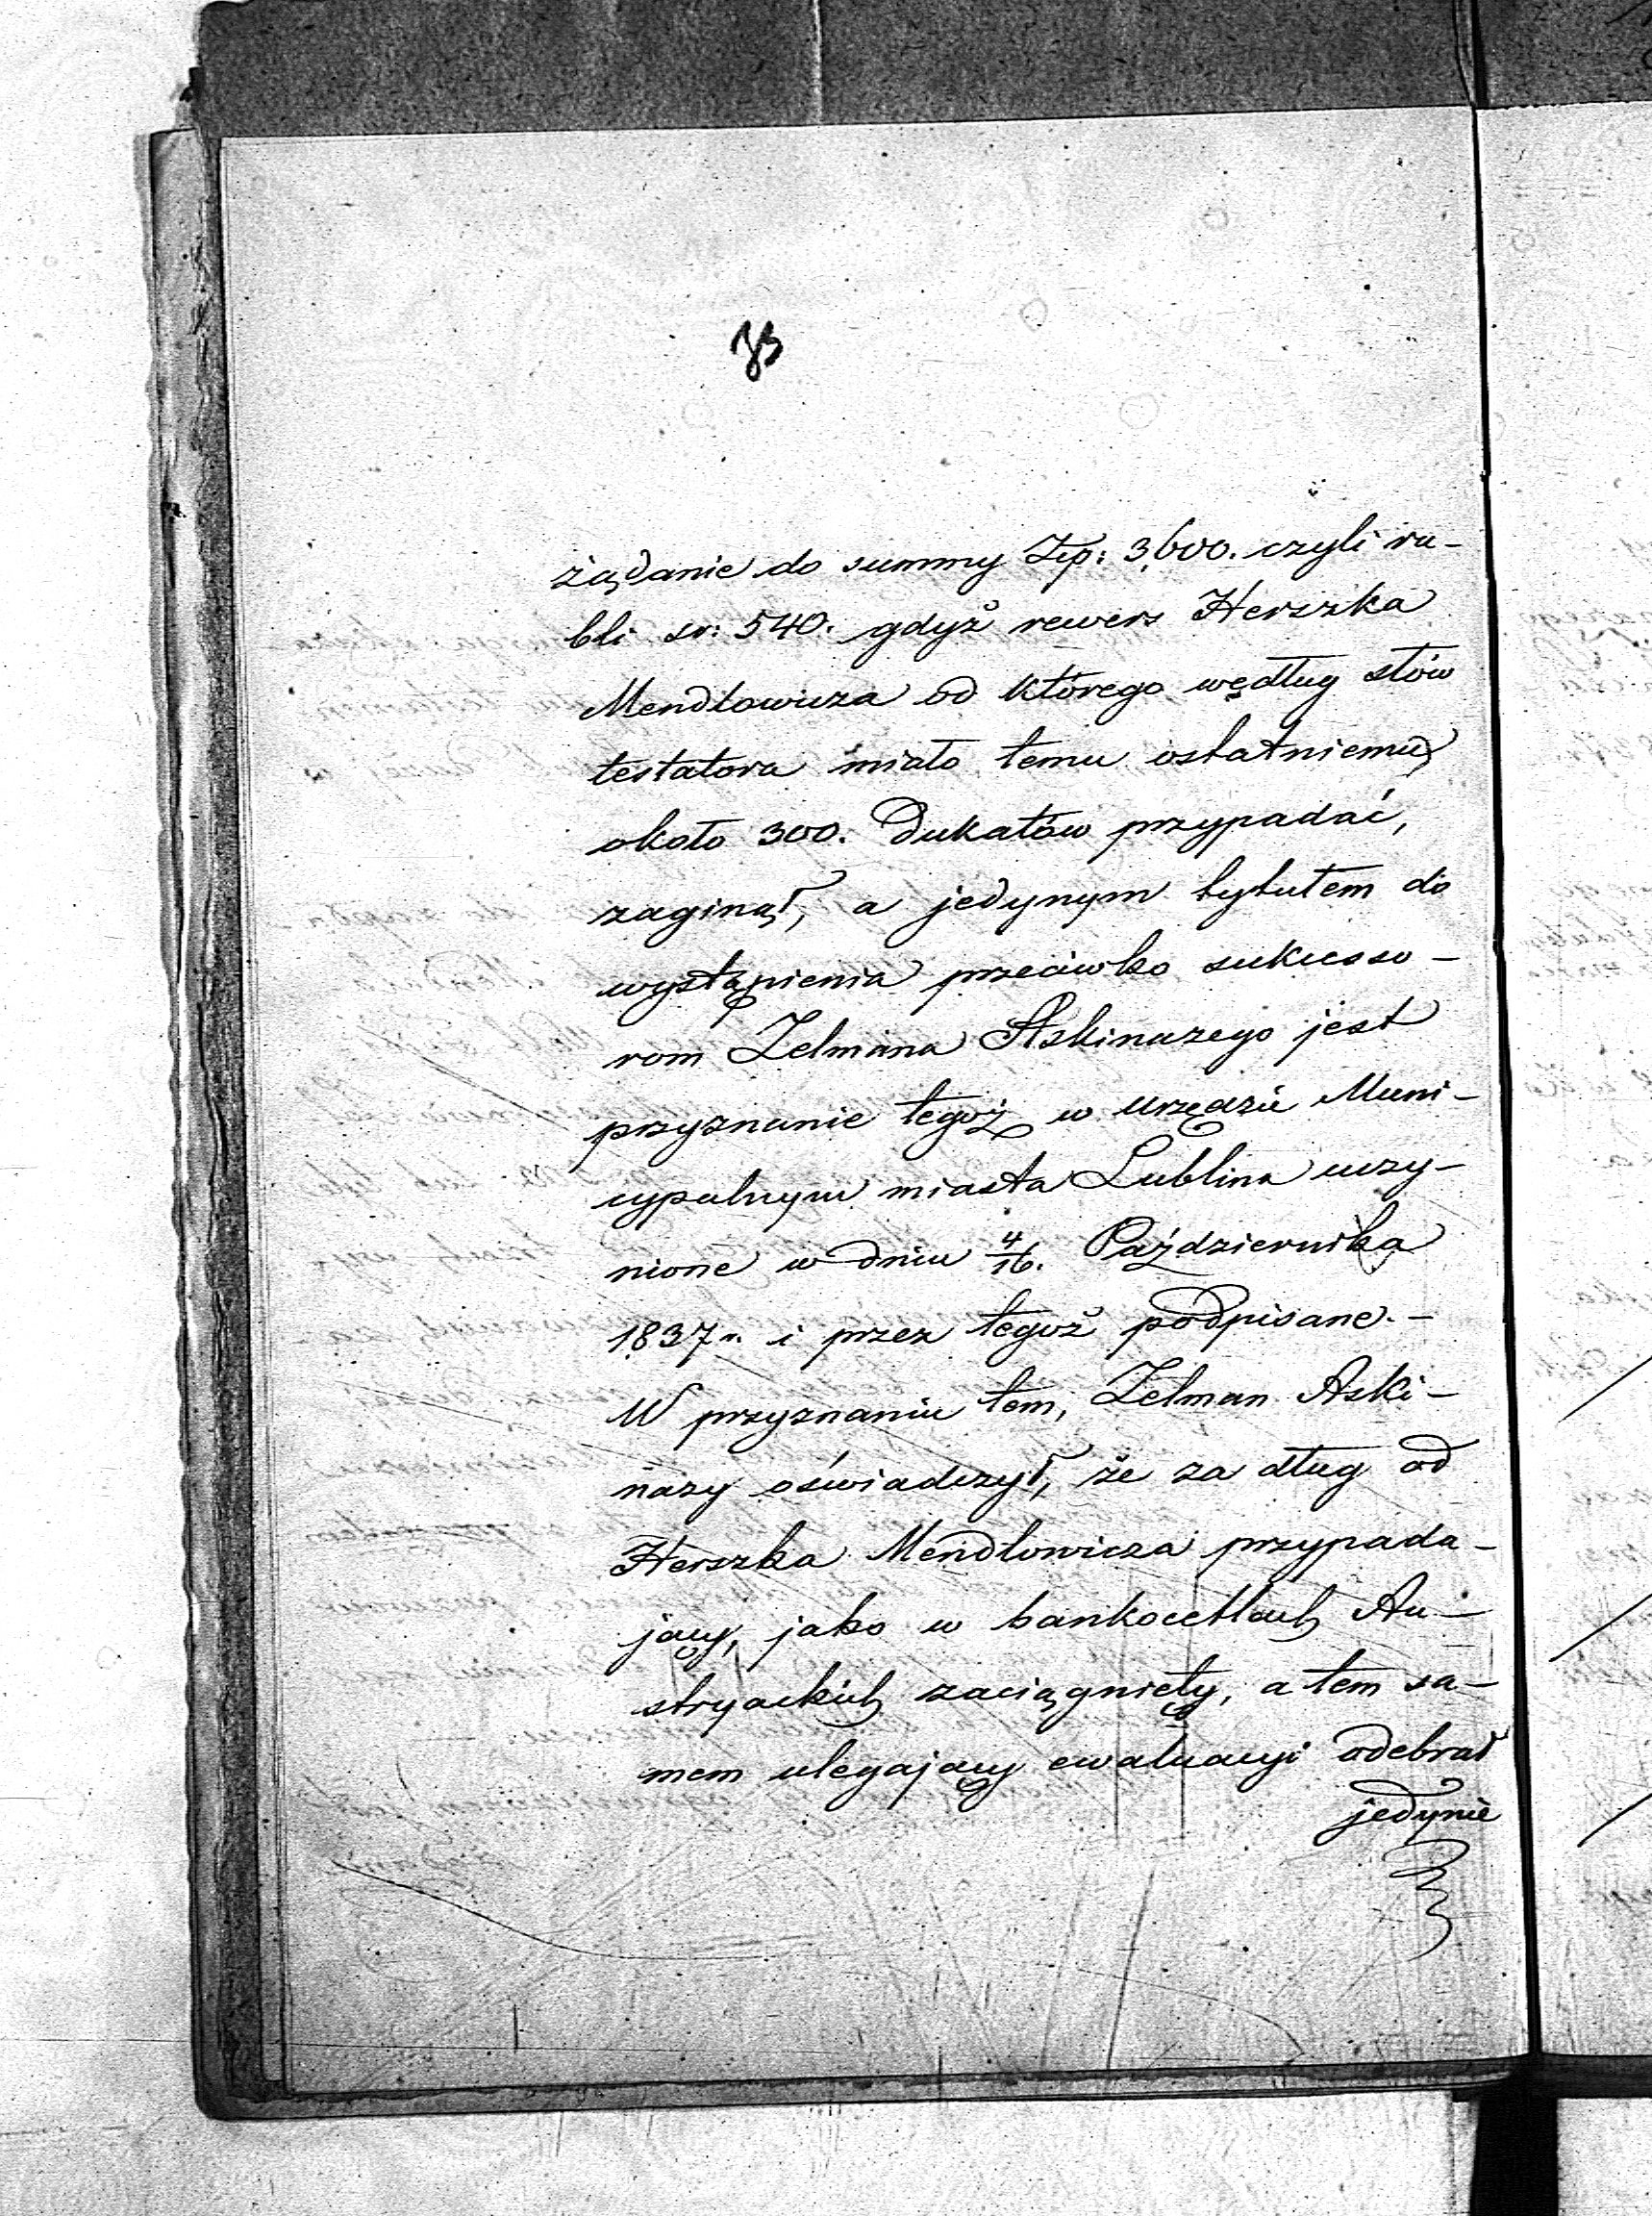 żądanie do summy Złp: 3,600. czyli ru-
bli sr: 540. gdyż rewers Herszka
Mendlowicza od którego według słów
testatora miało temu ostatniemu
około 300. Dukatów przypadać,
zaginął, a jedynym tytułem do
wystąpienia przeciwko sukcesso-
rom Zelmana Askinazego jest
przyznanie tegoż w Urzędzie Muni-
cypalnym miasta Lublina uczy-
nione w dniu 4/16. Października
1837 r. i przez tegoż podpisane. -
W przyznaniu tem, Zelman Aski-
nazy oświadczył, że za dług od
Herszka Mendlowicza przypada-
jący, jako w bankocetlach Au-
stryackich zaciągnięty, a tem sa-
mem ulegający ewaluacyi odebrał
jedynie